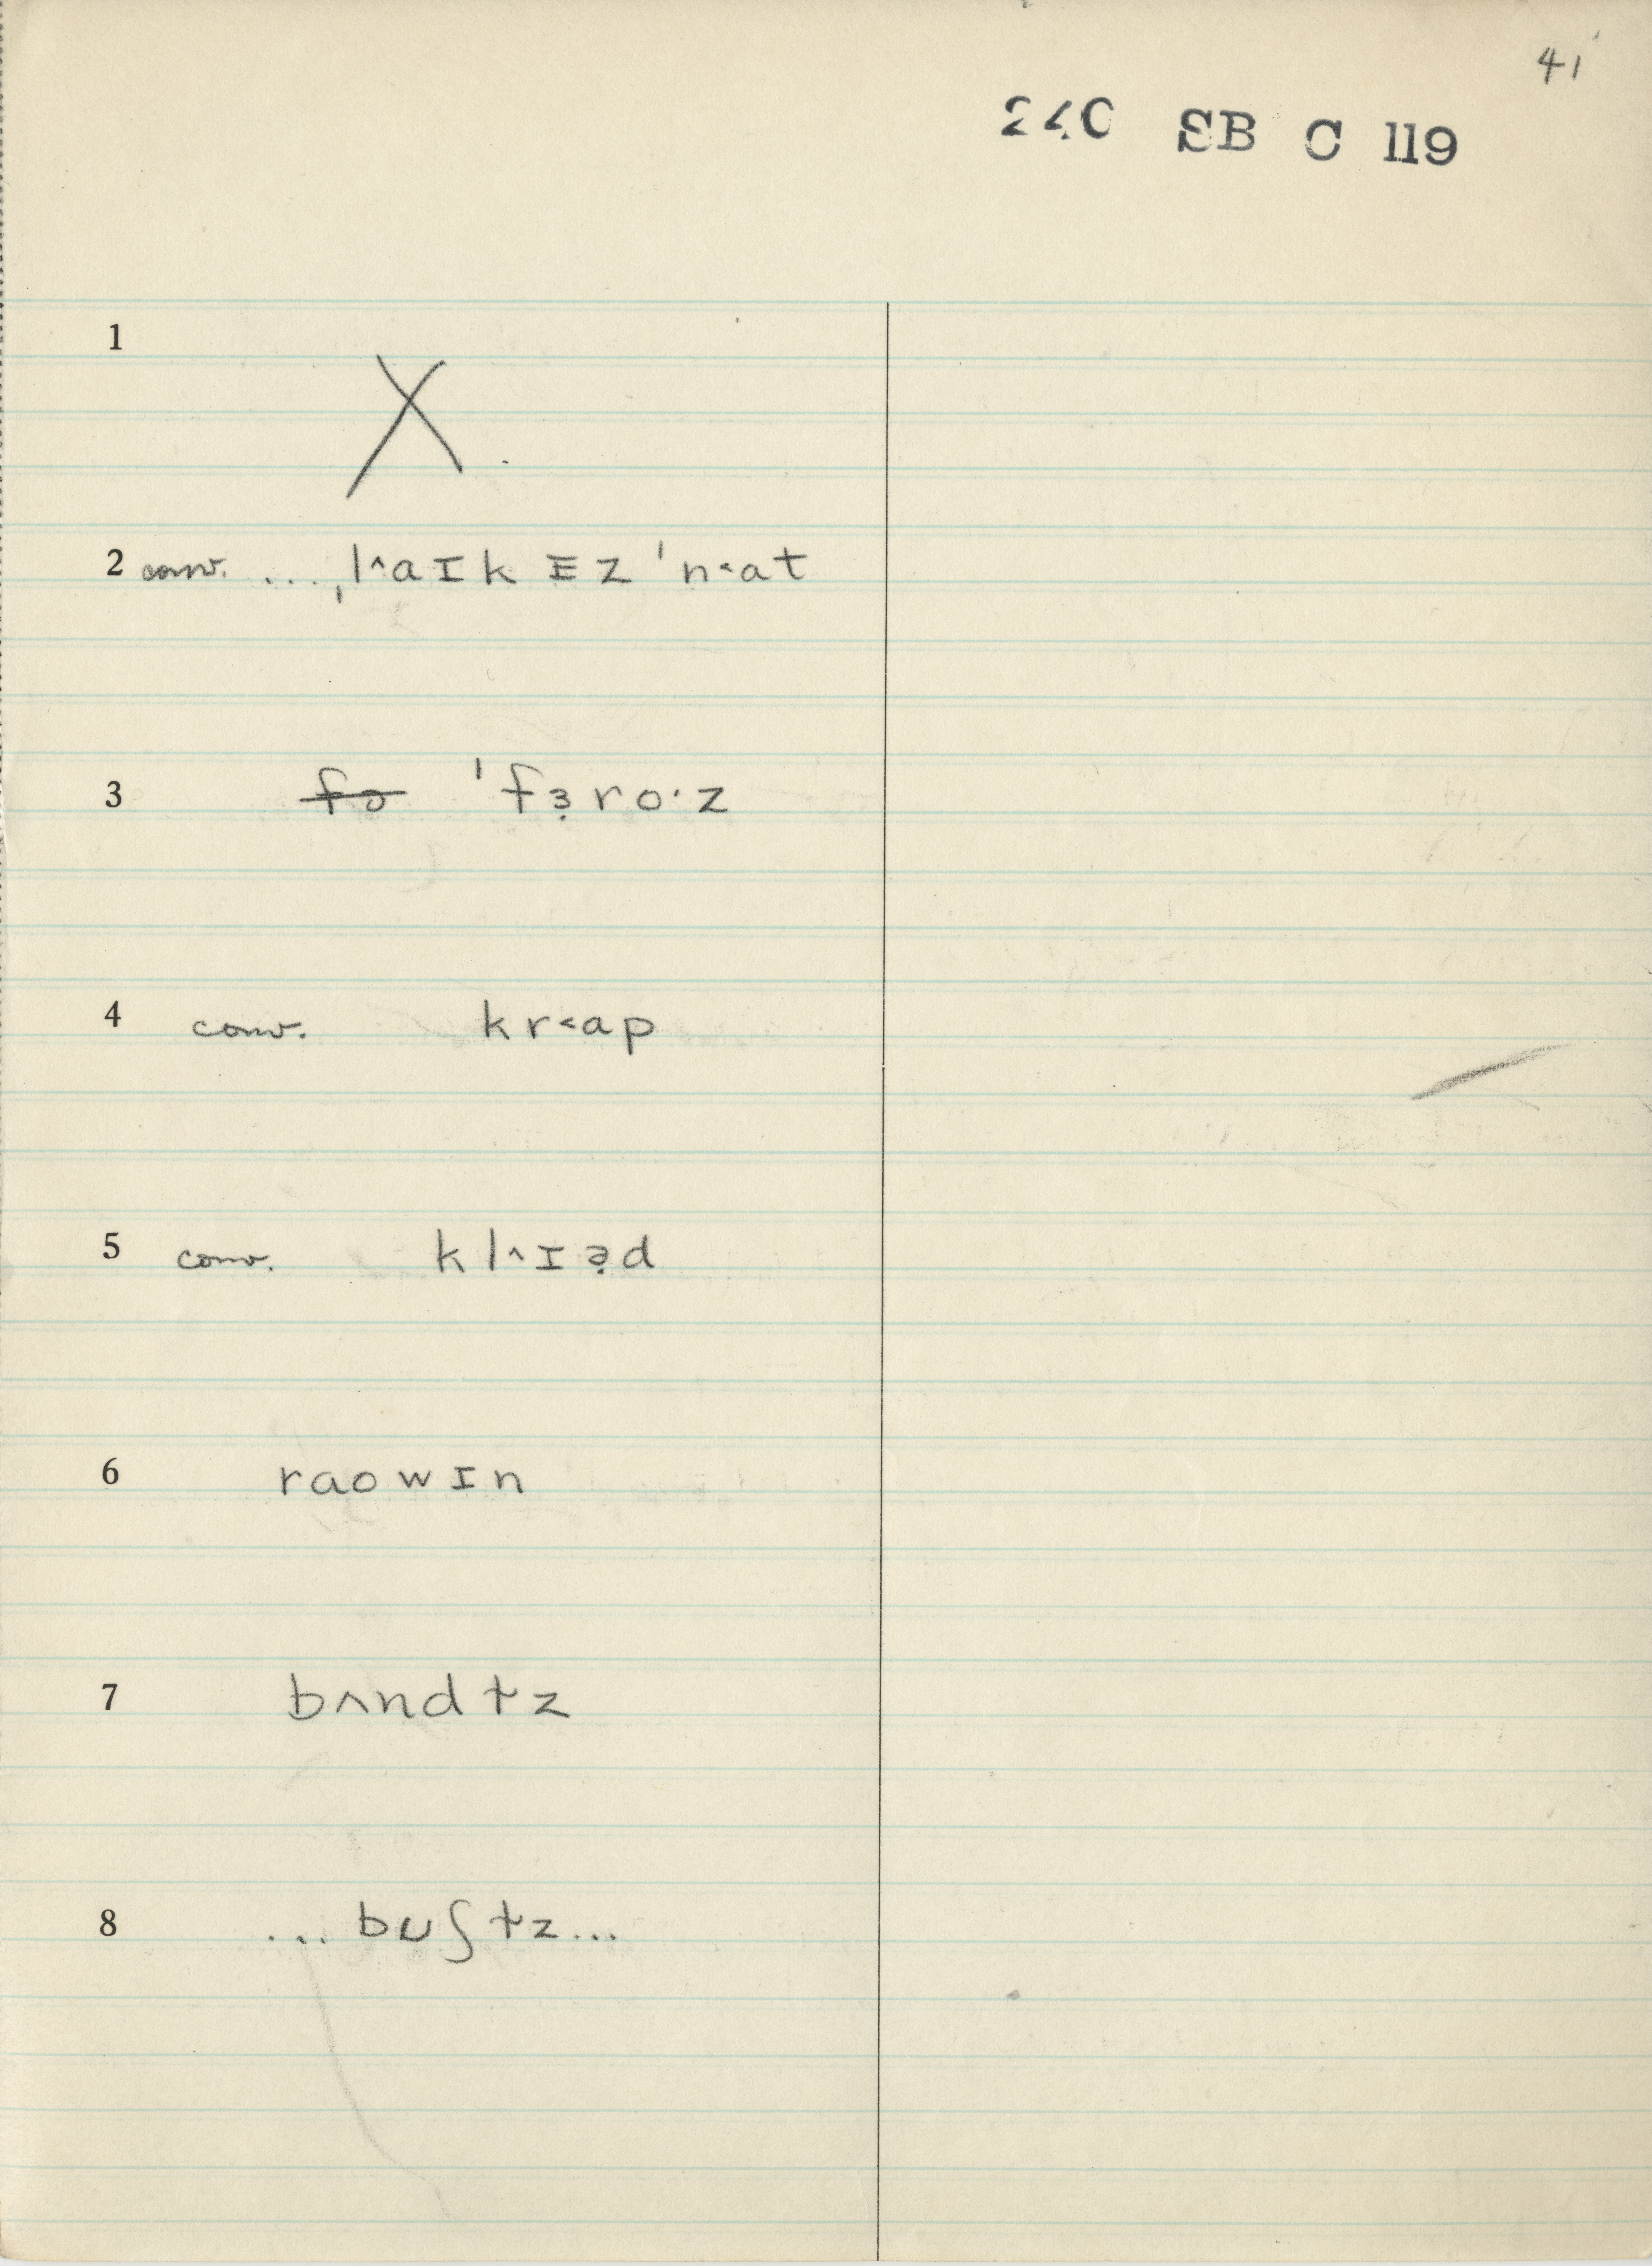 41
240 SB C 119
1 X
2 conv. ... ˌl^aɪk ɪz ˈn<at
3 ~~fɜ~~ ˈfɜ̣ro·z
4 conv. kr<ap
5 conv. kl^ɪə̣d
6 raowɪn
7 bʌndɫz
8 ... bʊʃɫz...